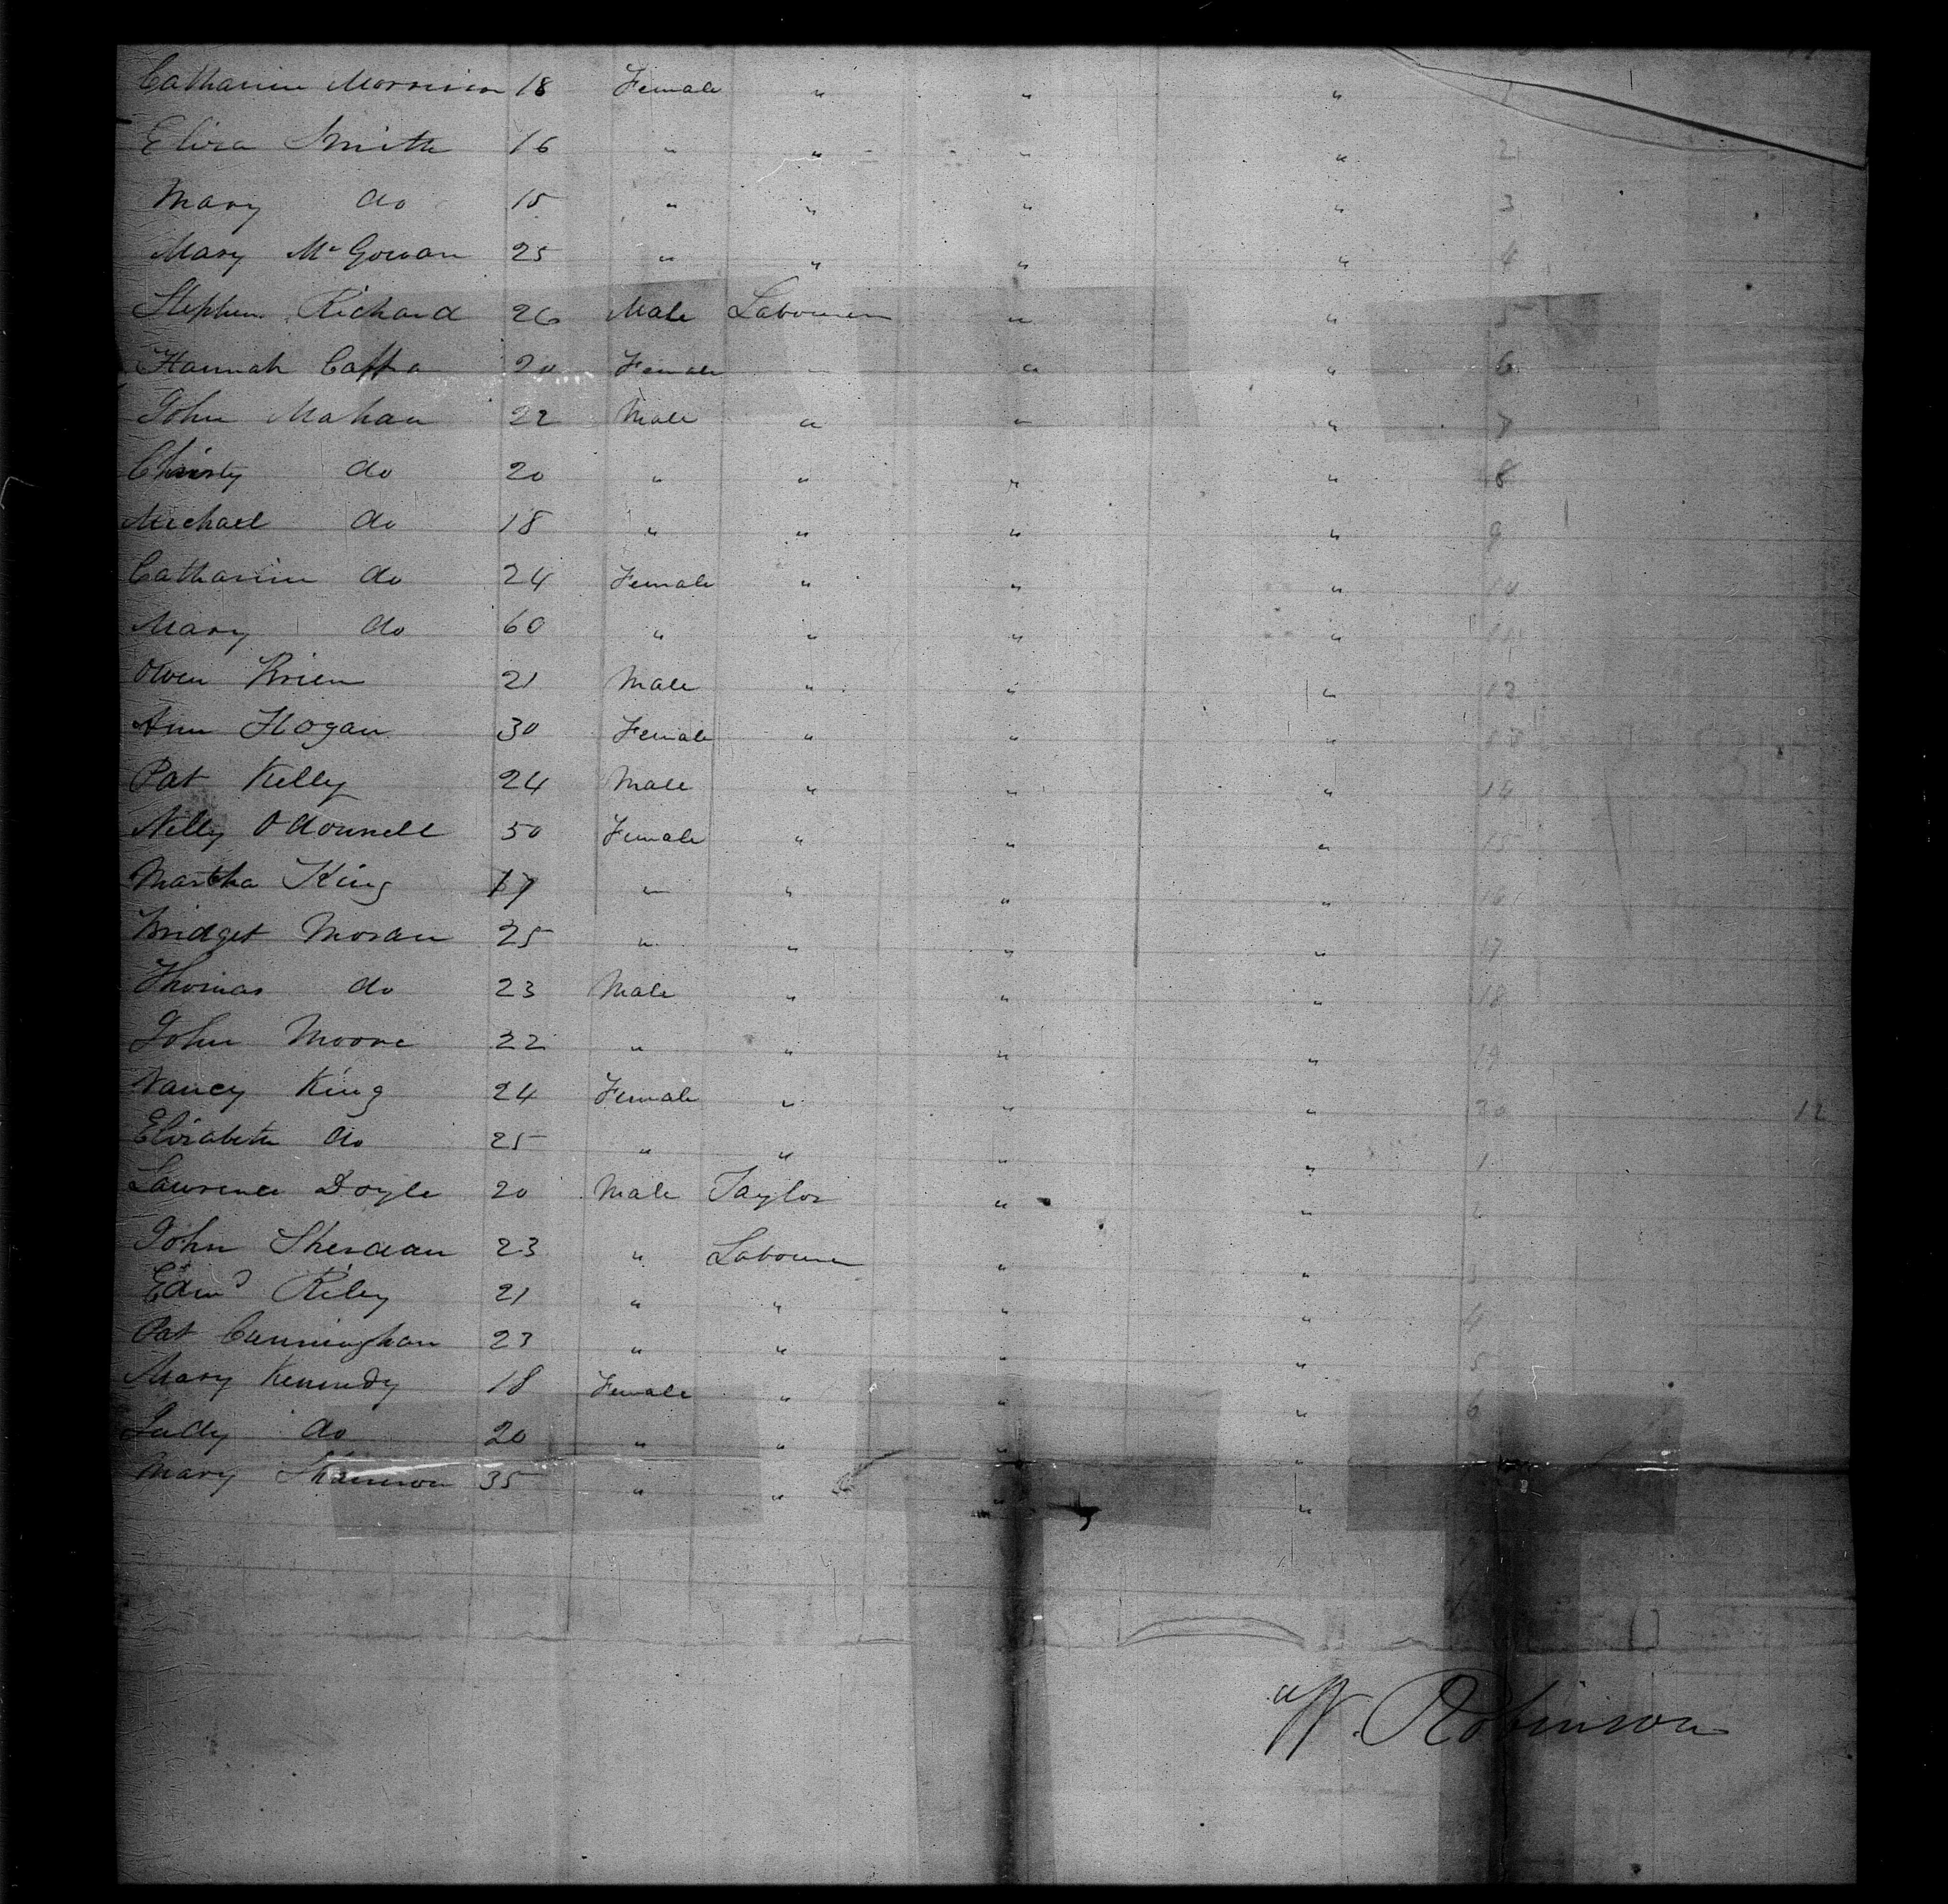 Catharine Morrison 18 Female " " " 1
Eliza Smith 16 " " " " 2
Mary do 15 " " " " 3
Mary McGowan 25 " " " " 4
Stephen Richard 26 Male Labourer " " 5
Hannah 20 Female " " " 6
John Mahan 22 Male " " " 7
Christy do 20 " " " " 8
Michael do 18 " " " " 9
Catharine do 24 Female " " " 10
Mary do 60 " " " " 11
Owen Brien 21 Male " " " 12
Ann Hogan 30 Female " " " 13
Pat Kelly 24 Male " " " 14
Nelly O'Donnell 50 Female " " " 15
Martha King 17 " " " " 16
Bridget Moran 25 " " " " 17
Thomas do 23 Male " " " 18
John Moore 22 " " " " 19
Nancy King 24 Female " " " 20 12
Elizabeth do 25 " " " " 1
Lawrence Doyle 20 Male Taylor " "
John Sheridan 23 " Labourer " " 3
Edmd Riley 21 " " " " 4
Pat Cunningham 23 " " " " 5
Mary Kennedy 18 Female " " " 6
Judy do 20 " " " "
Mary Shannon 35 " " " "
W. Robinson